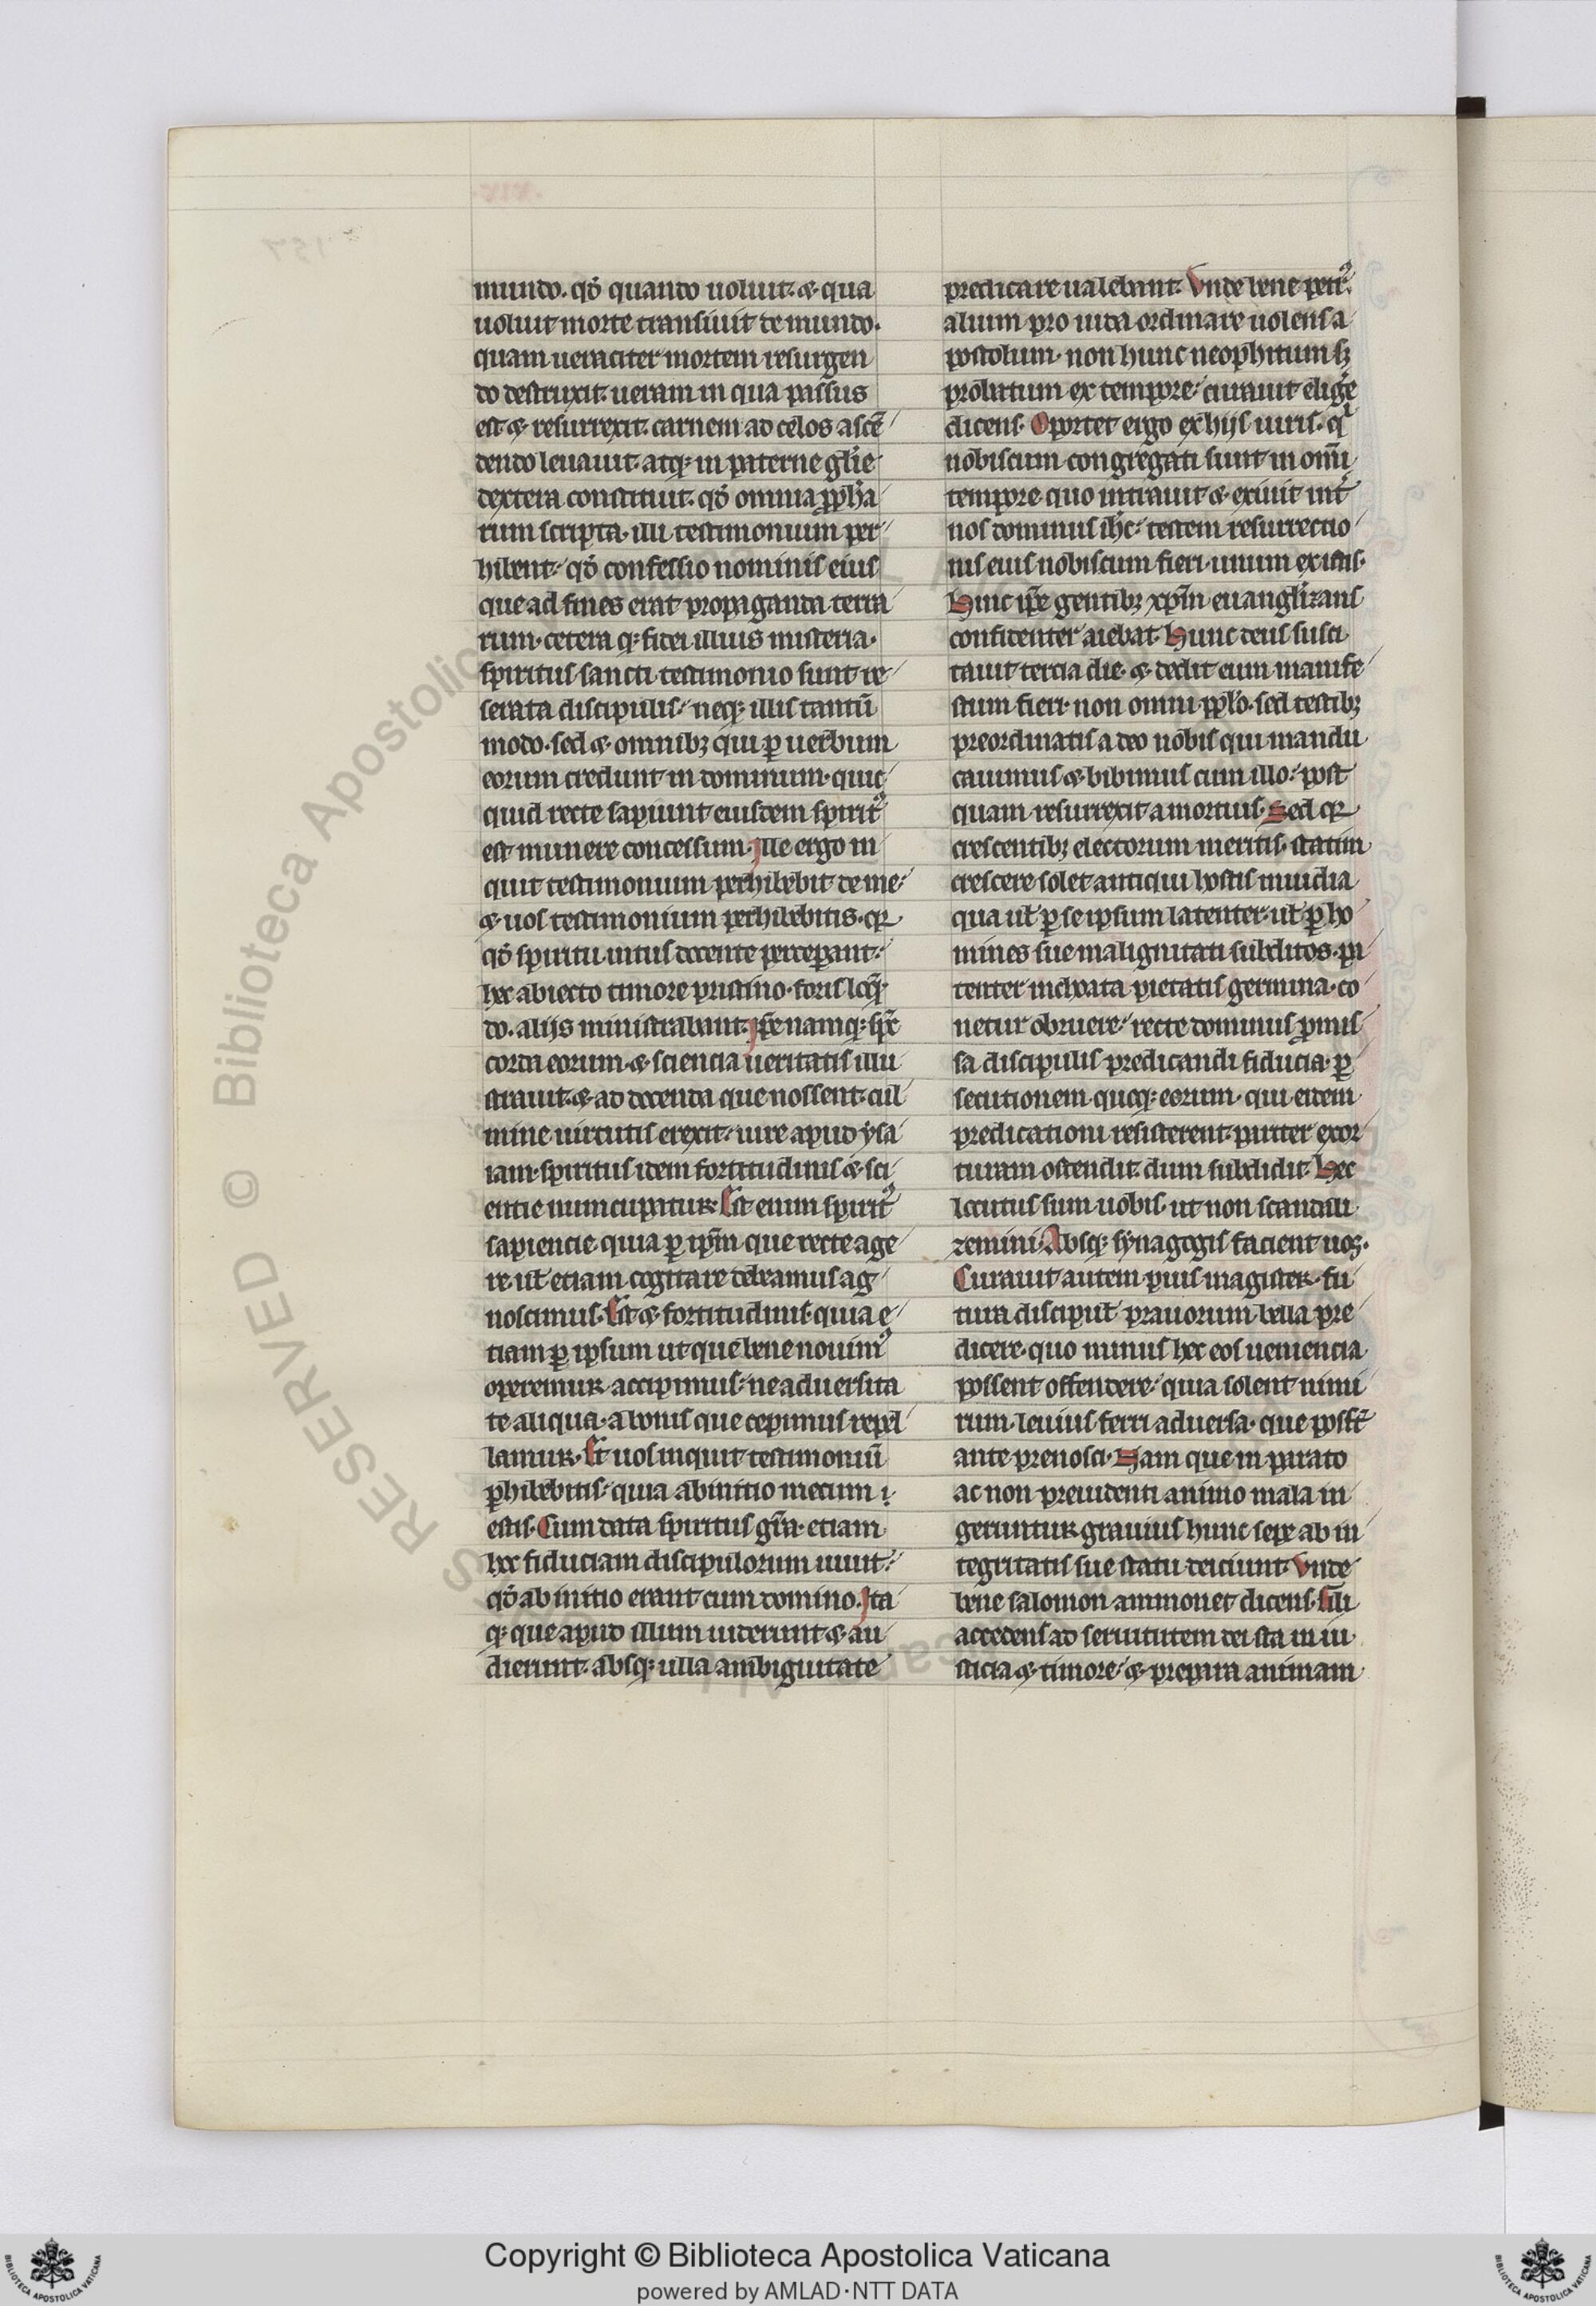 mundo. qđ quando uoluit. & qua
uoluit morte transiuit de mundo.
quam ueraciter mortem resurgen
do destruxit. ueram in qua passus
est & resurrexit. carnem ad celos ascē
dendo leuauit. atq; in paterne glīe
dextera constituit. qđ omnia ꝓph̄a
rum scripta. illi testimonium per
hibent. qđ confessio nominis eius
que ad fines erat propaganda terra
rum. cetera q; fidei illius misteria.
spiritus sancti testimonio sunt re
serata discipulis. neq; illis tantū
modo. sed & omnibꝫ qui ꝑ uerbum
eorum credunt in dominum. quic
quid recte sapiunt eiusdem spiritꝰ
est munere concessum. Ille ergo in
quit testimonium perhibebit de me.
& uos testimonium perhibebitis. qꝛ
qđ spiritu intus docente perceperant.
hec abiecto timore pristino. foris loq̄n
do. alijs ministrabant. Ip̄e namq; sp̄c
corda eorum. & sciencia ueritatis illu
strauit. & ad docenda que nossent. cul
mine uirtutis erexit. iure apud ysa
iam. spiritus idem fortitudinis & sci
entie nuncupatur. Est enim spiritꝰ
sapiencie quia ꝑ ip̄m que recte age
re. uł etiam cogitare debeamus ag
noscimus. Est & fortitudinis. quia e
tiam ꝑ ipsum ut que bene nouimꝰ
operemur accipimus. ne aduersita
te aliqua. a bonis que cepimus repel
lamur. Et uos inquit testimoniū
ꝑhibebitis. quia ab initio mecum
estis. Cum data spiritus gr̄a. etiam
hec fiduciam discipulorum iuuit.
qđ ab initio erant cum domino. Ita
q; que apud illum uiderunt & au
dierunt. absq; ulla ambiguitate
predicare ualebant. Vnde bene petrꝰ.
alium pro iuda ordinare uolens a
postolum. non hunc neophitum sꝫ
probatum ex tempore. curauit elige̛
dicens. Oportet ergo ex hijs uiris. qͥ
nobiscum congregati sunt in om̄i
tempore quo intrauit & exiuit int̛
nos dominus ih̄c. testem resurrectio
nis eius nobiscum fieri. unum ex istis.
Hinc ip̄e gentibꝫ xp̄m euanglizans
confidenter aiebat. Hunc deus susci
tauit tercia die. & dedit eum manife
stum fieri. non omni ppl̄o. sed testibꝫ
preordinatis a deo nobis qui mandu
cauimus & bibimus cum illo. post
quam resurrexit a mortuis. Sed qꝛ
crescentibꝫ electorum meritis. statim
crescere solet antiqui hostis inuidia
qua uł ꝑ se ipsum latenter. uł ꝑ ho
mines sue malignitati subditos. pa
tenter inchoata pietatis germina. co
netur obruere. recte dominus ꝓmis
sa discipulis predicandi fiducia. ꝑ
secutionem quoq; eorum. qui eidem
predicationi resisterent. pariter exor
turam ostendit. dum subdidit. Hec
locutus sum uobis. ut non scandali
zemini. Absq; synagogis facient uos.
Curauit autem pius magister. fu
tura discipuł prauorum bella pre
dicere. quo minus hec eos ueniencia
possent offendere. quia solent nimi
rum. leuius ferri aduersa. que posst̄
ante prenosci. Nam que in parato
ac non preuidenti animo mala in
geruntur grauius hunc sepe ab in
tegritatis sue statu deiciunt. Vnde
bene salomon ammonet dicens. Fili
accedens ad seruitutem dei sta in iu
sticia & timore. & prepara animam